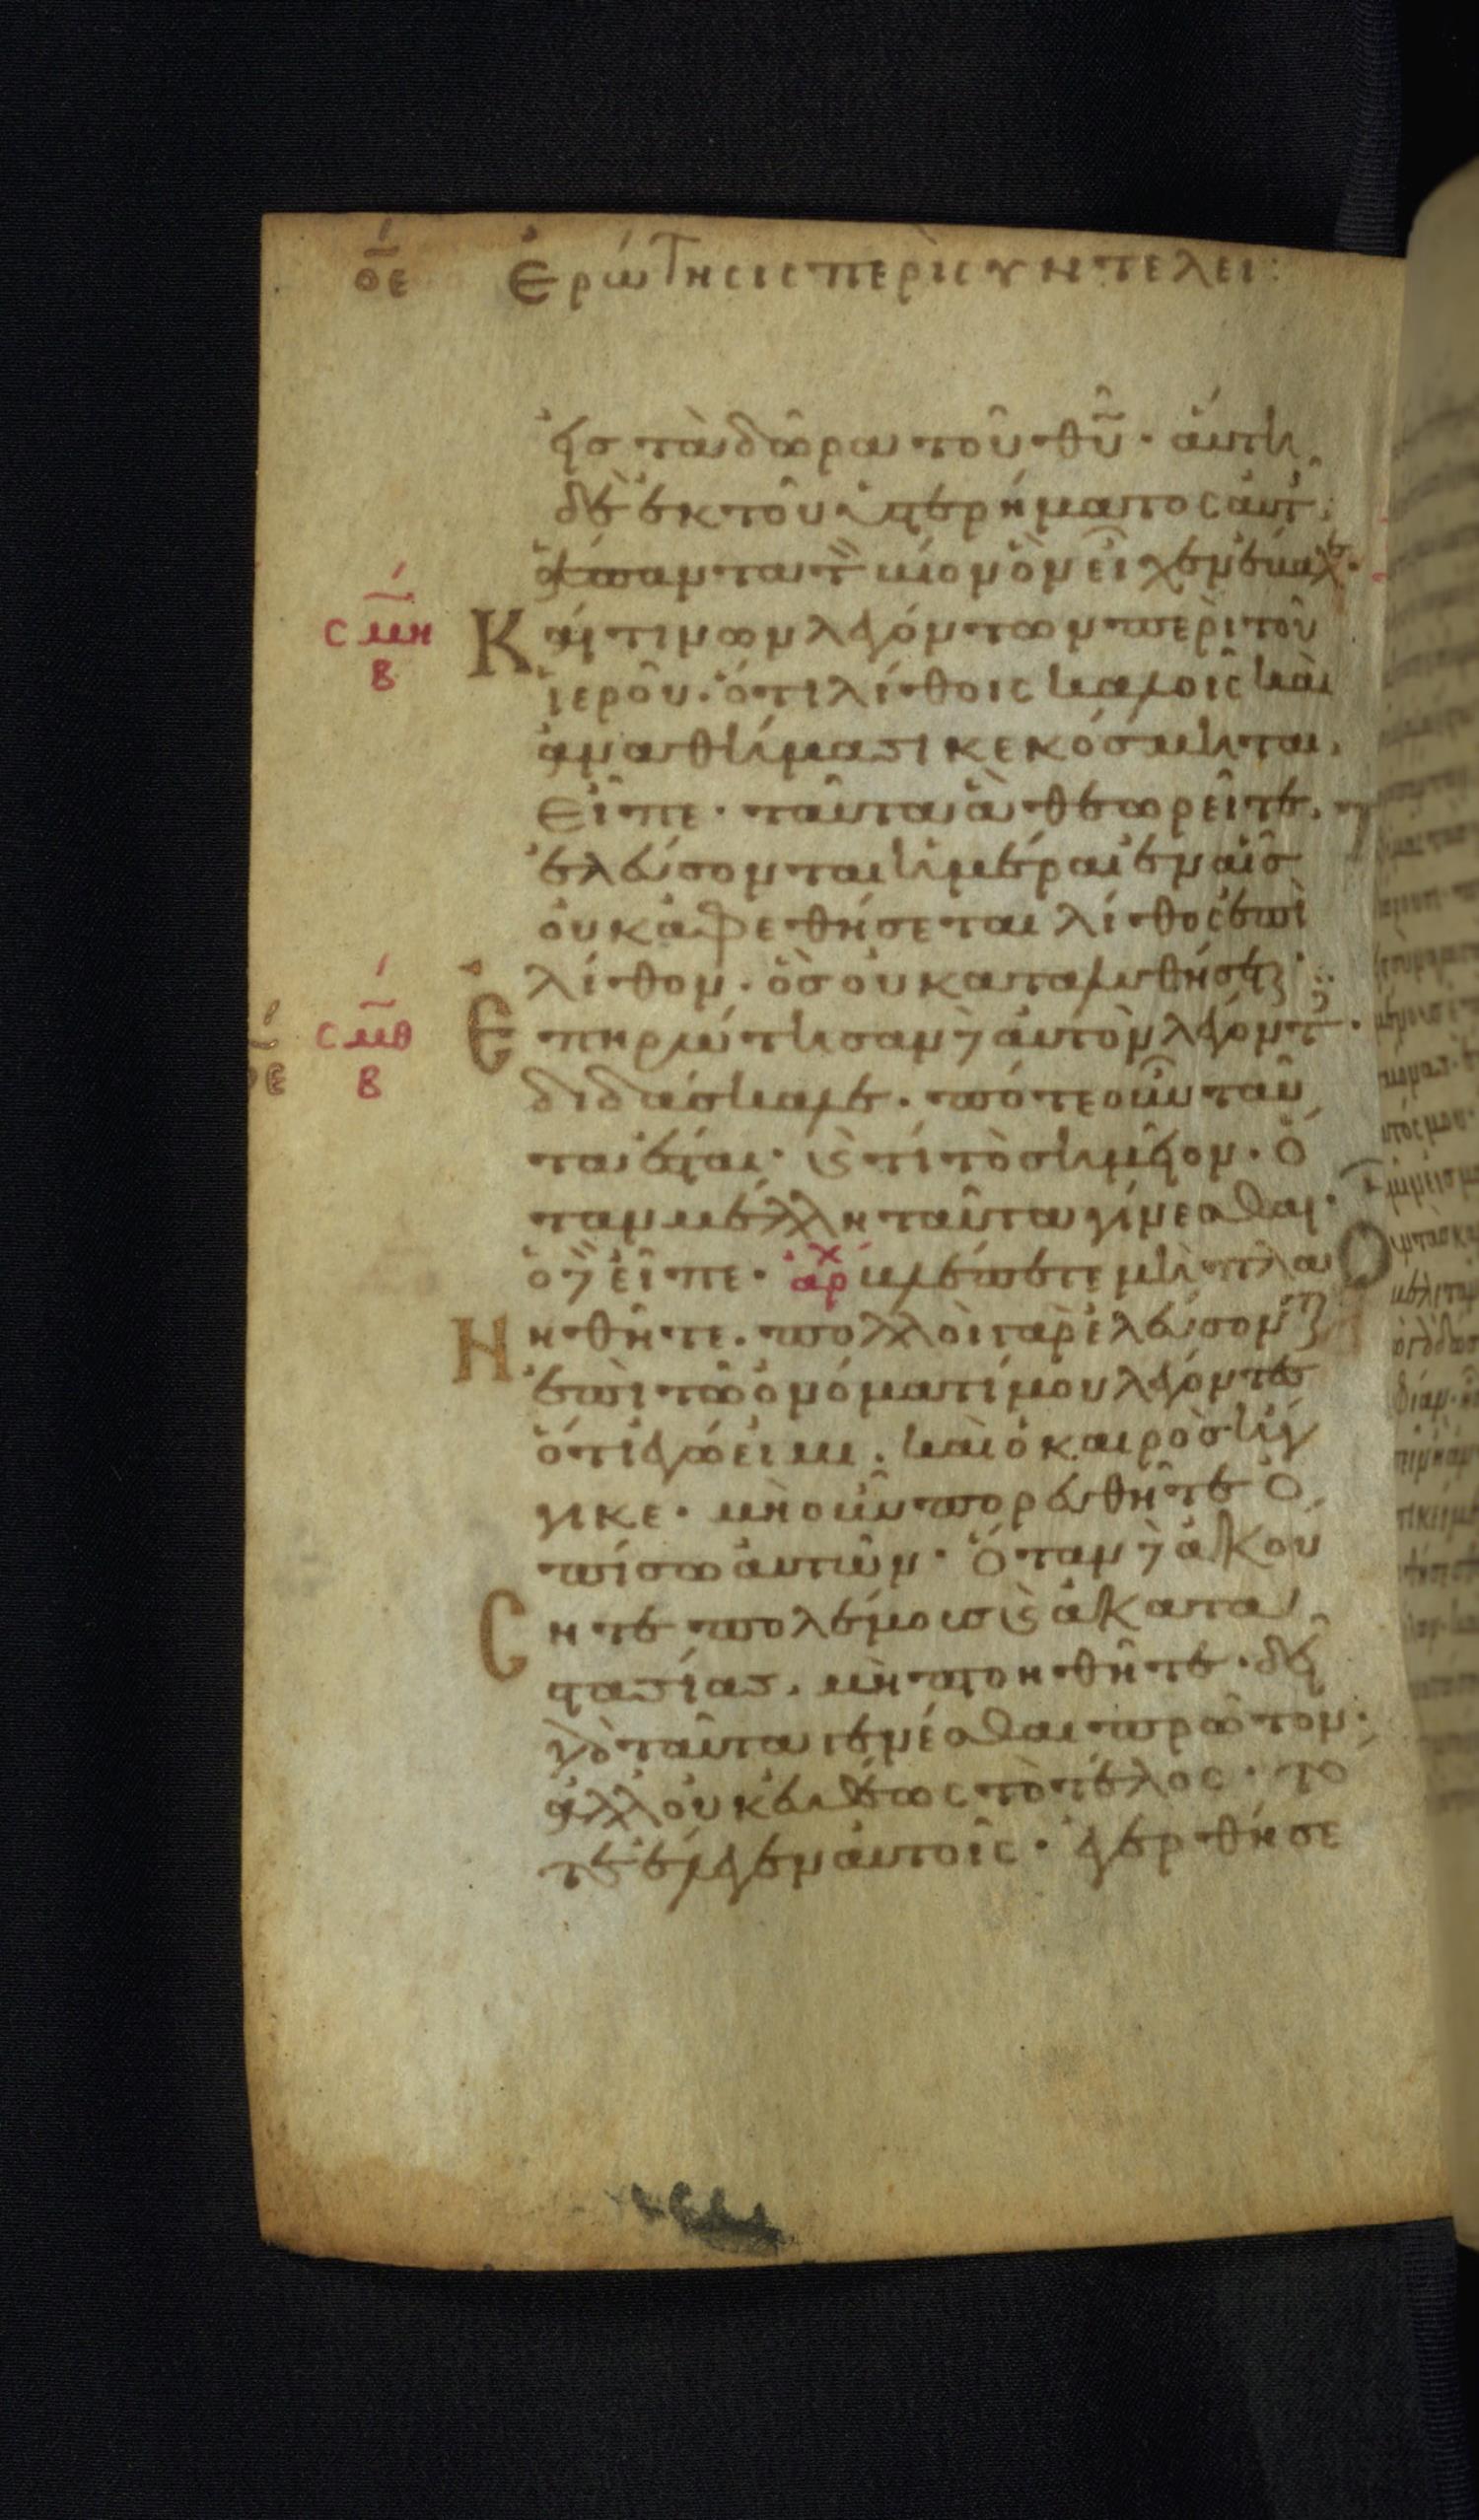 οε Ἐρώτησις περὶ συντελεί:
εἰς τὰ δῶρα τοῦ θῦ· αὕτη
δὲ ἐκ τοῦ ὑστερήματος αὐτ
ἅπαντα τ βίον ὃν εἶχεν ἔβαλε·
σμη
β
Καί τινων λεγόντων περὶ τοῦ
ἱεροῦ· ὅτι λίθοις καλοῖς καὶ
ἀναθήμασι κεκόσμηται,
εἶπε· ταῦτα ἃ θεωρεῖτε,
ἐλεύσονται ἡμέραι ἐν αἷς
οὐκ ἀφεθήσεται λίθος ἐπὶ
λίθον· ὃς οὐ καταλυθήσεται·
σμθ
β
οε
Ἐπηρώτησαν δὲ αὐτὸν λέγοντ·
διδάσκαλε· πότε οὖν ταῦ
τα ἔσται· καὶ τί τὸ σημεῖον· ὅ
ταν μέλλη ταῦτα γίνεσθαι·
ὁ δὲ εἶπε· ἀρχ βλέπετε μὴ πλα
νηθῆτε· πολλοὶ γὰρ ἐλεύσονται
ἐπὶ τῶ ὀνόματί μου λέγοντες
ὅτι ἐγώ εἰμι· καὶ ὁ καιρὸς ἤγ
γικε· μὴ οὖν πορευθῆτε ὀ
πίσω αὐτῶν· Ὅταν δὲ ἀκού
σητε πολέμοις καὶ ἀκατα
στασίας· μὴ πτοηθῆτε· δεῖ
γὰρ ταῦτα γενέσθαι πρῶτον·
ἀλλ οὐκ εὐθέως τὸ τέλος· τό
τε ἔλεγεν αὐτοῖς· ἐγερθήσε